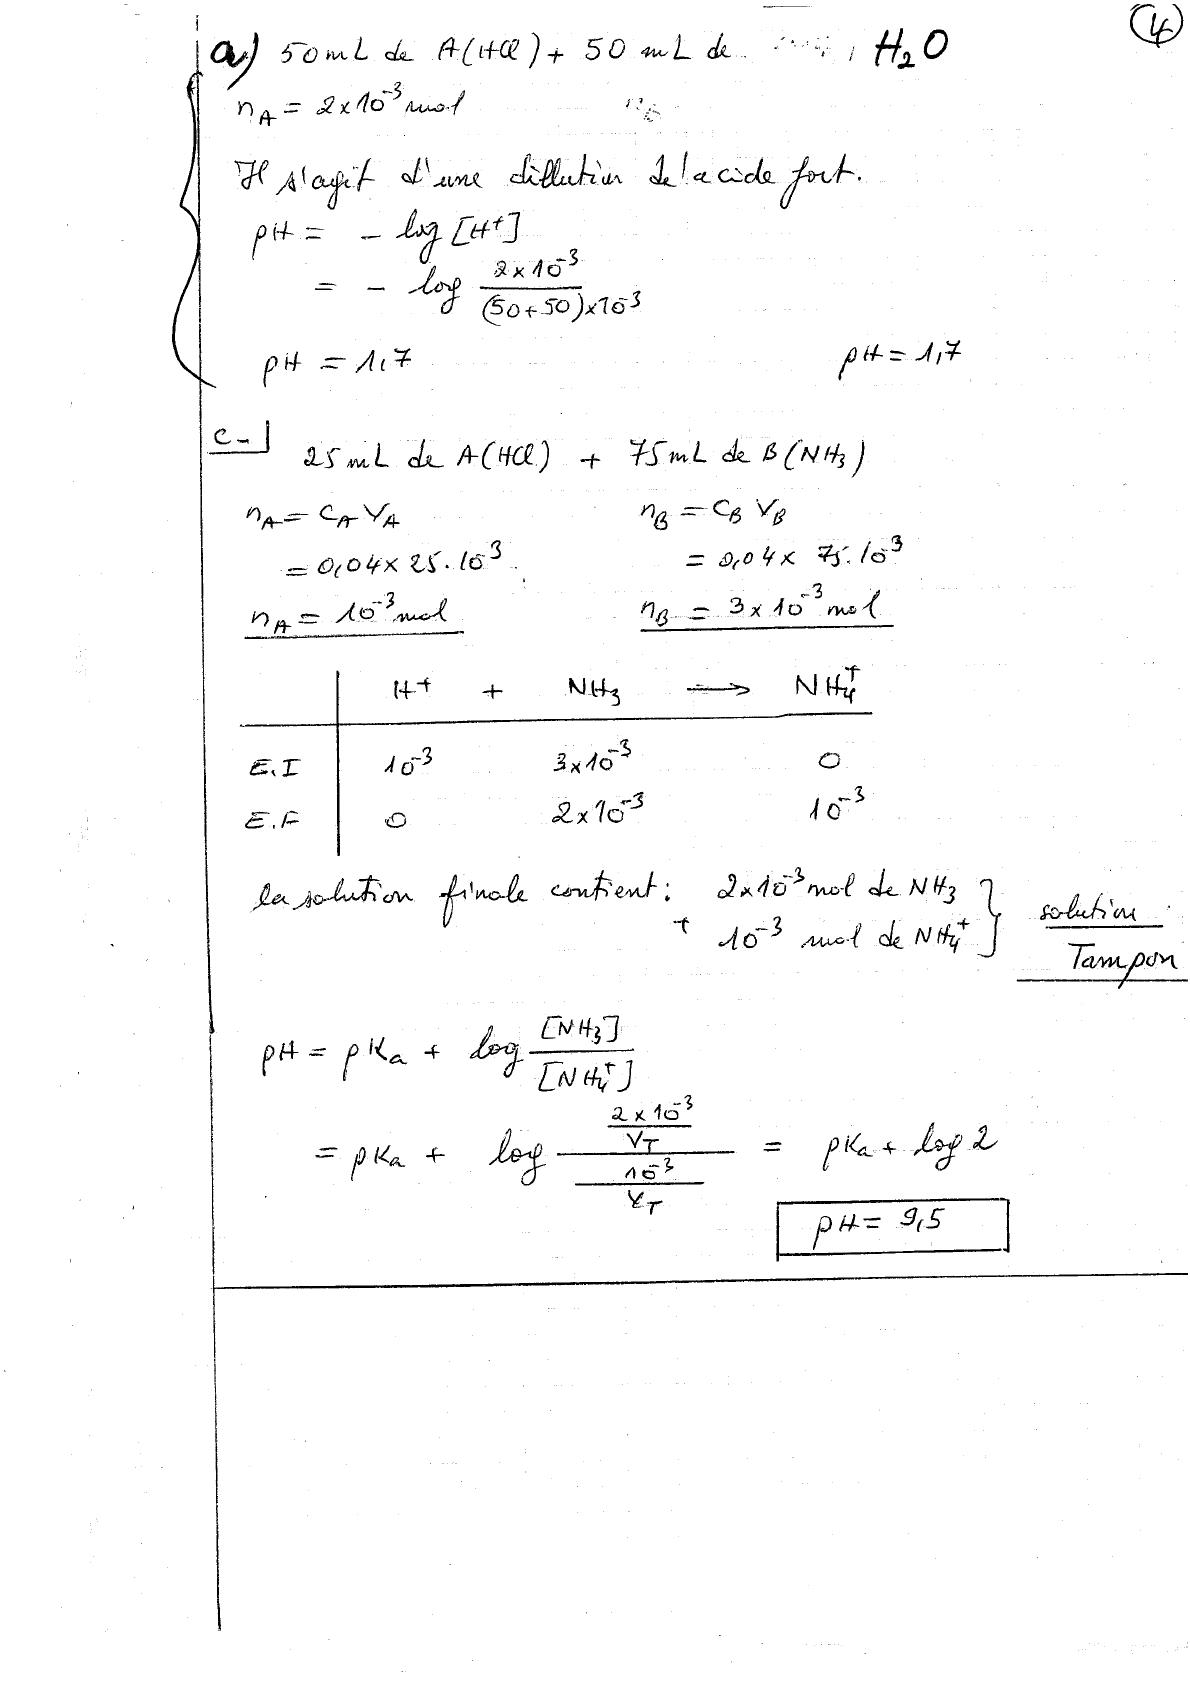 4
a) 50 mL de A(HCl) + 50 mL de H₂O
nA = 2×10⁻³ mol
Il s'agit d'une dillution de l'acide fort.
pH = - log [H⁺]
= - log 2×10⁻³ / (50+50)×10⁻³
pH = 1,7 pH = 1,7
c-] 25 mL de A(HCl) + 75 mL de B(NH₃)
nA = CA VA nB = CB VB
= 0,04 × 25.10⁻³ = 0,04 × 75.10⁻³
nA = 10⁻³ mol nB = 3×10⁻³ mol
H⁺ + NH₃ → NH₄⁺
E.I 10⁻³ 3×10⁻³ 0
E.F 0 2×10⁻³ 10⁻³
la solution finale contient : 2×10⁻³ mol de NH₃ } solution
+ 10⁻³ mol de NH₄⁺ } Tampon
pH = pKa + log [NH₃] / [NH₄⁺]
= pKa + log (2×10⁻³ / VT) / (10⁻³ / VT) = pKa + log 2
pH = 9,5